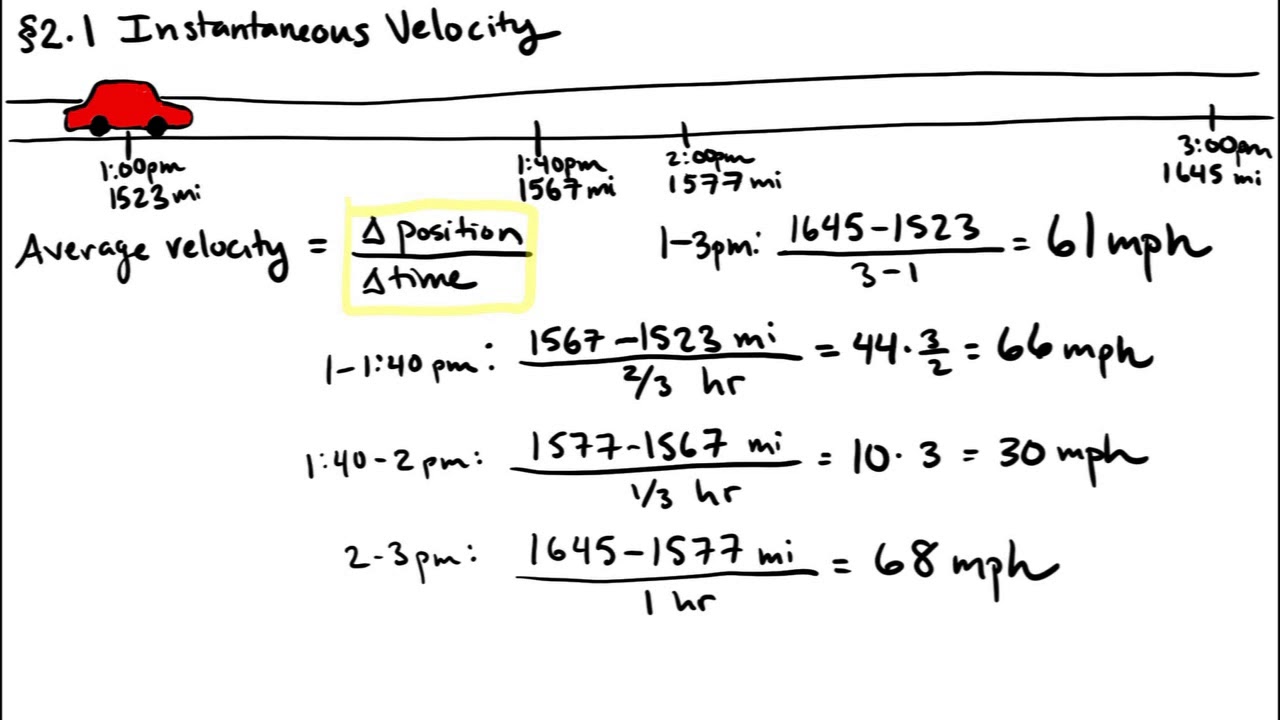 §2.1 Instantaneous Velocity
1:00pm
1523 mi
1:40pm
1567 mi
2:00pm
1577 mi
3:00pm
1645 mi
Average velocity = Δ position / Δ time
1-3pm: 1645-1523 / 3-1 = 61 mph
1-1:40 pm: 1567-1523 mi / 2/3 hr = 44·3/2 = 66 mph
1:40-2 pm: 1577-1567 mi / 1/3 hr = 10·3 = 30 mph
2-3pm: 1645-1577 mi / 1 hr = 68 mph